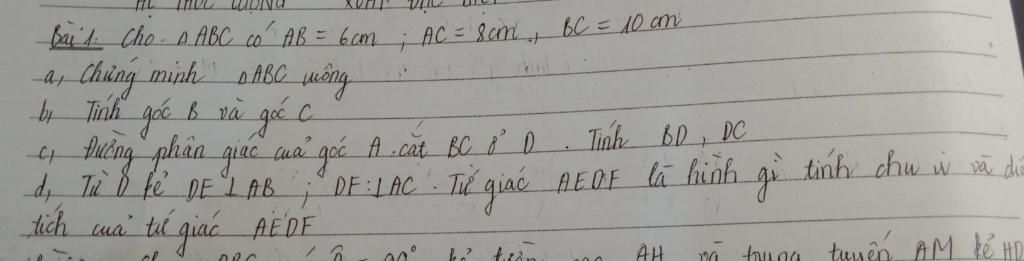 HỆ THỨC LƯỢNG
Bài 1. Cho △ABC có AB = 6cm ; AC = 8cm, BC = 10cm
a, Chứng minh △ABC vuông
b, Tính góc B và góc C
c, Đường phân giác của góc A cắt BC ở D. Tính BD, DC
d, Từ D kẻ DE ⊥ AB ; DF ⊥ AC. Tứ giác AEDF là hình gì tính chu vi và
tích của tứ giác AEDF
AH và trung tuyến AM kẻ HD